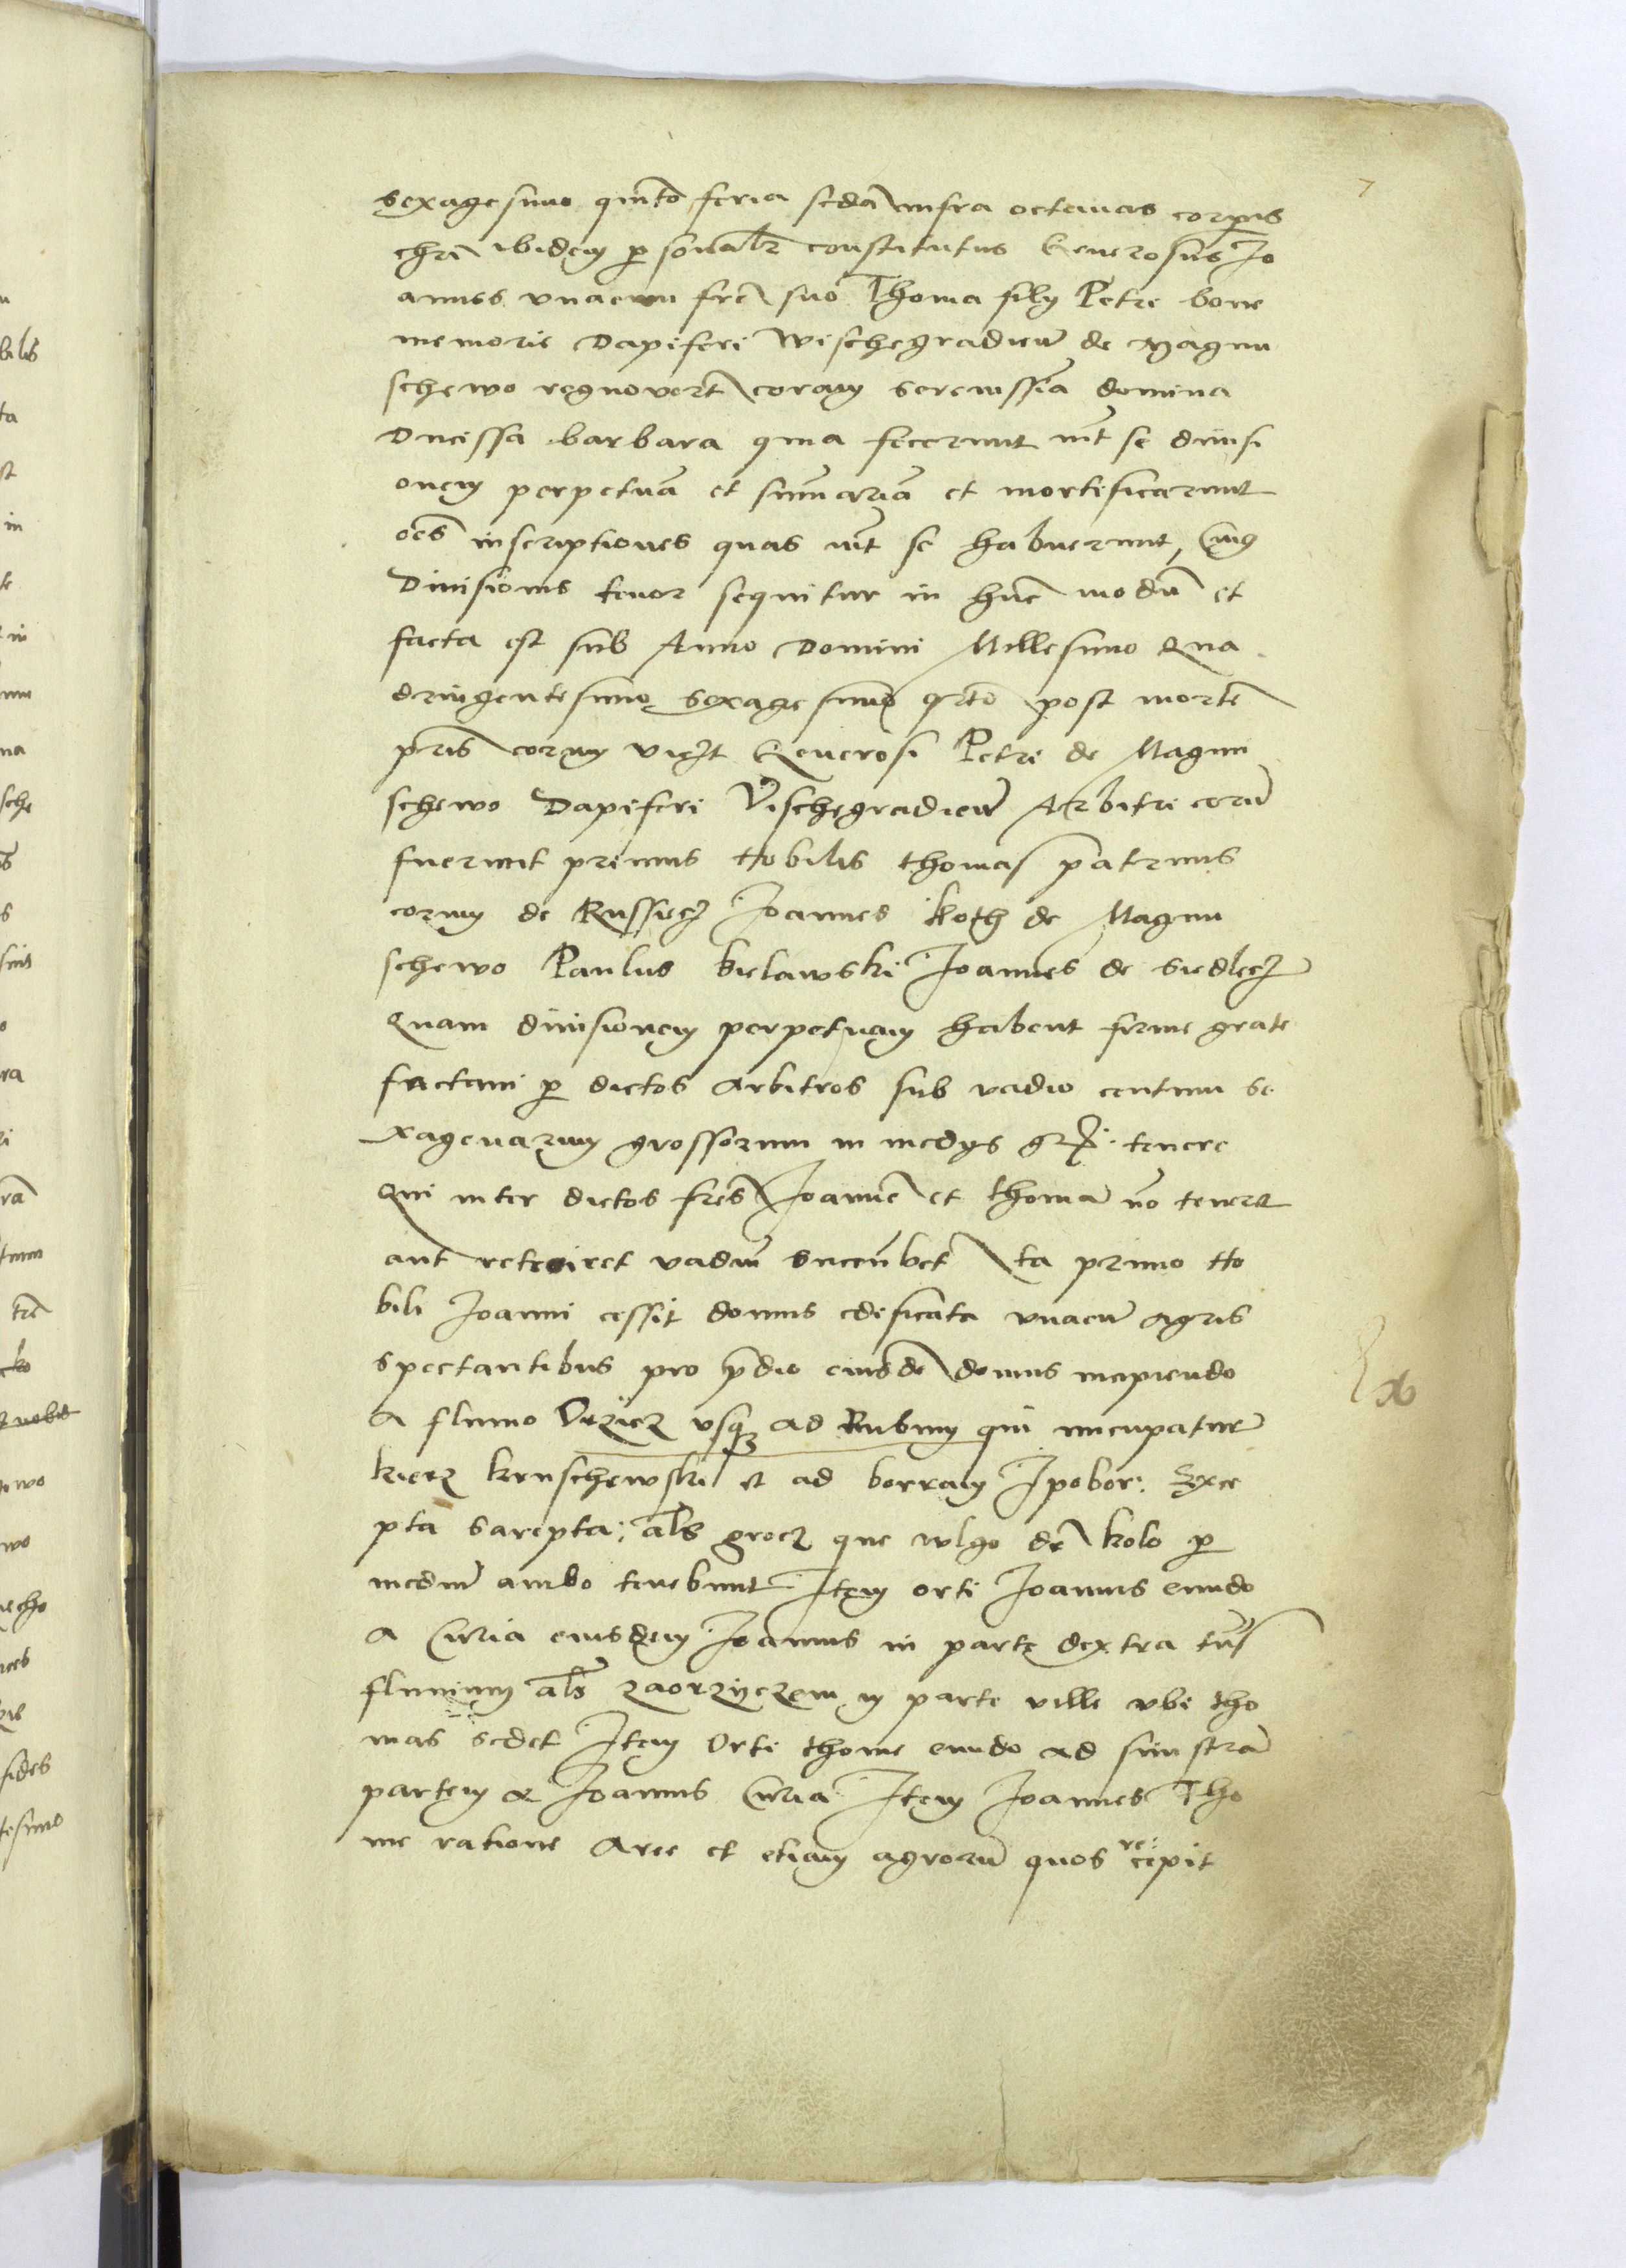 7
sexagesimo quinto feria sc̄da infra octauas corpus
chrī ibidem p̱sonalr̄ constitutus Generosus Jo
annes vnacum frē suo Thoma filij Petri bone
memorie Dapiferi Wischegradien̄ de Magnu
schewo regnovert̄ coram serenissīa domina
Ducissa barbara quia fecerunt int̄ se diuisi
onem perpetuā et sum̄ariā et mortificarunt
oēs inscriptiones quas int̄ se habuerunt, Cuius
Diuisionis tenor sequitur in hūc modū et
facta est sub Anno Domini Millesimo Qua
dringentesimo sexagesimo qrto post mortē
pris̄ eorum vidzt Generosi Petri de Magnu
schewo Dapiferi Vischegradien̄ Arbitri eorū
fuerunt primus Nobilis thomas patruus
eorum de Russiecz Joannes koth de Magnu
schewo Paulus bielawski Joannes de siedlecz
Quam diuisionem perpetuam habent firme grate
factam p̱ dictos arbitros sub vadio centum se
xagenarum grossorum in medijs gr̄ tenere
Qui inter dictos frēs Joannē et thomā nō teneret
aut retrairet vadiū succūbet Ita primo No
bili Joanni cessit domus edificata vnacū agris
spectantibus pro p̄dio eiusdē domus incipiendo
A fluuio Orzicz vsq̄ ad Rubum qui nuncupatur
kierz kruschewski et ad borram Ipobor: Exce
pta sarepta: als̄ grocz que wlgo dr̄ kolo p̱
mediū ambo tenebunt Item orti Joannis eundo
A Curia eiusdem Joannis in parte dextra
fluuium als̄ zaorzyczem in parte ville vbi tho
mas sedet Item Orti thome eundo ad sinistrā
partem a Joannis Curia Item Joannes Tho
me ratione Aree et etiam agrorū quos recepit